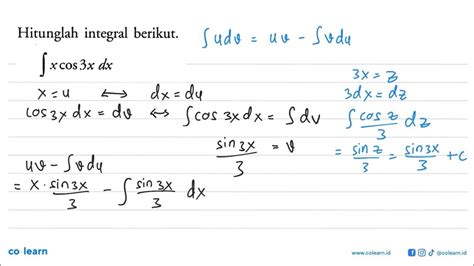 Hitunglah integral berikut.
∫udv = uv - ∫vdu
∫ x cos 3x dx
x = u ⟷ dx = du
cos 3x dx = dv ⟷ ∫cos 3x dx = ∫dv
sin 3x / 3 = v
3x = z
3dx = dz
∫ cos z / 3 dz
= sin z / 3 = sin 3x / 3 + c
uv - ∫vdu
= x · sin 3x / 3 - ∫ sin 3x / 3 dx
co·learn
www.colearn.id
@colearn.id